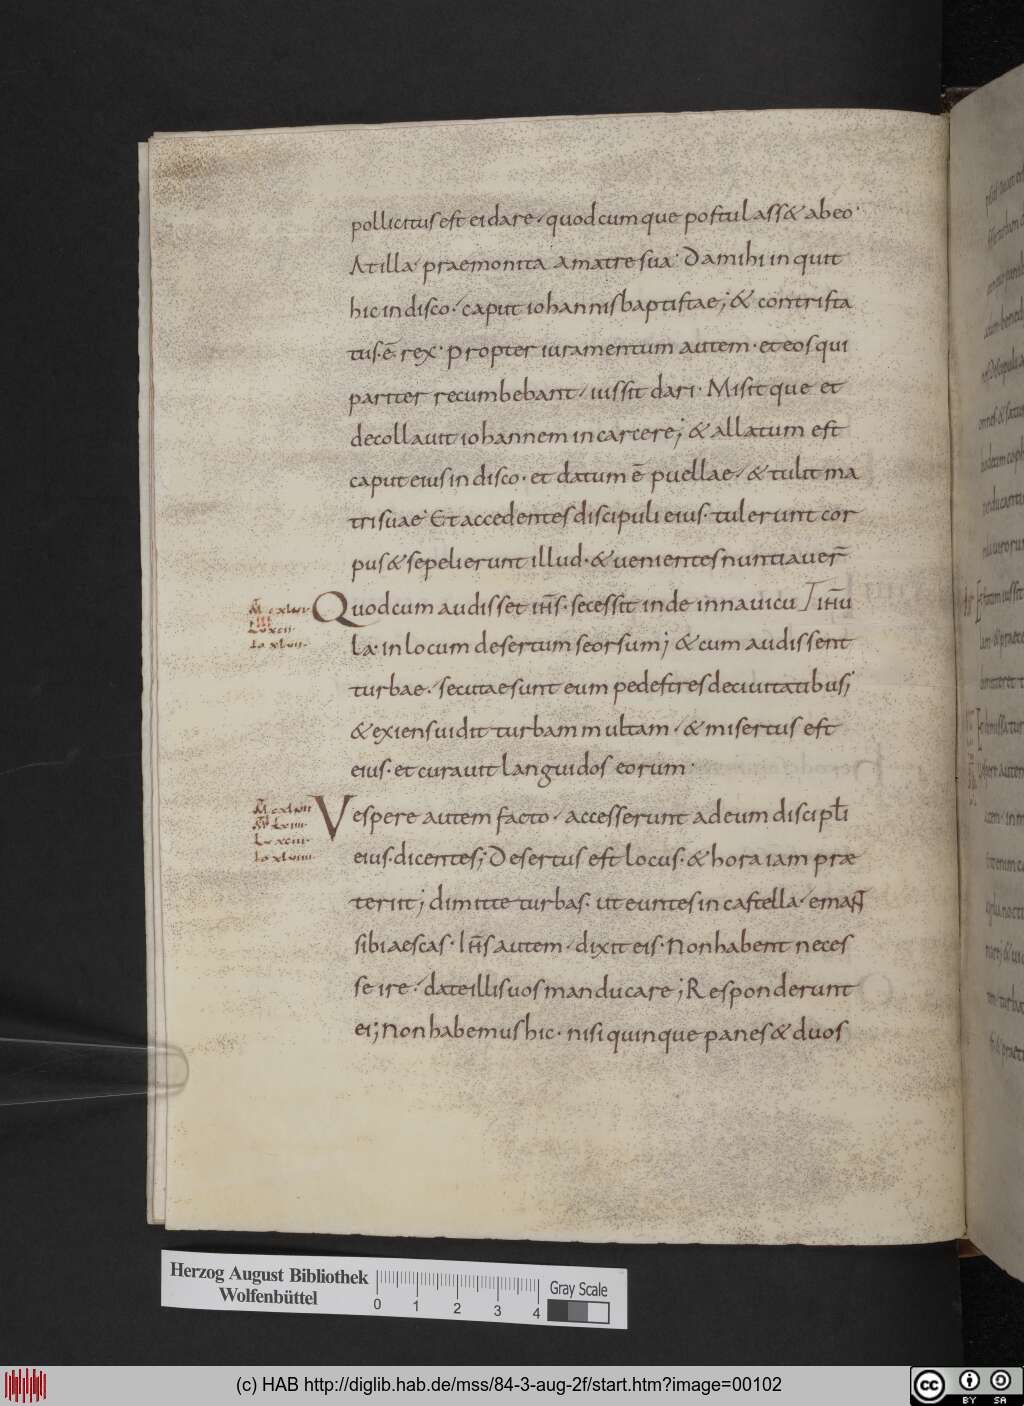 pollicitus est ei dare, quodcumque postulass& ab eo.
At illa praemonita a matre sua. Da mihi inquit
hic in disco. caput iohannis baptistae; & contrista
tus. ē rex. propter iuramentum autem. et eos qui
pariter recumbebant, iussit dari. Misitque et
decollavit iohannem in carcere; & allatum est
caput eius in disco. et datum ē puellae, & tulit ma
tri suae. Et accedentes discipuli eius. tulerunt cor
pus & sepelierunt illud. & venientes nuntiaver̄
Quod cum audisset ih̄s. secessit inde in navicu
la. in locum desertum seorsum; & cum audissent
turbae. secutae sunt eum pedestres de civitatibus;
& exiens vidit turbam multam, & misertus est
eius. et curavit languidos eorum.
Vespere autem facto. accesserunt ad eum discipl̄i
eius. dicentes; Desertus est locus. & hora iam præ
teriit; dimitte turbas. ut euntes in castella. emant
sibi aescas. Ih̄s autem, dixit eis. Non habent neces
se ire. date illis vos manducare; Responderunt
ei; non habemus hic. nisi quinque panes & duos
Herzog August Bibliothek
Wolfenbüttel
0 1 2 3 4
Gray Scale
(c) HAB http://diglib.hab.de/mss/84-3-aug-2f/start.htm?image=00102
cc BY SA